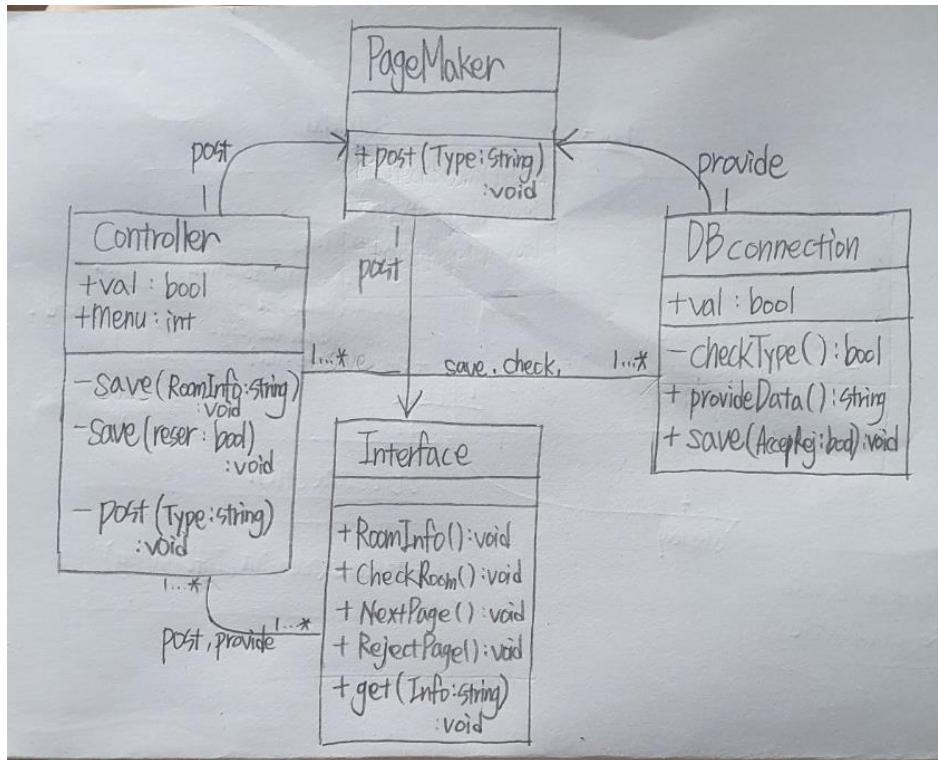 PageMaker
+ post (Type:String)
:void
post
1
provide
1
Controller
+val : bool
+Menu : int
-save(RoomInfo:string)
:void
-save(reser:bool)
:void
- post (Type:string)
:void
1
post
DBconnection
+val : bool
-checkType():bool
+ provideData():string
+ save(AccepRej:bool):void
1...*
save, check,
1...*
Interface
+RoomInfo():void
+CheckRoom():void
+NextPage():void
+RejectPage():void
+get(Info:string)
:void
1...*
post, provide
1...*